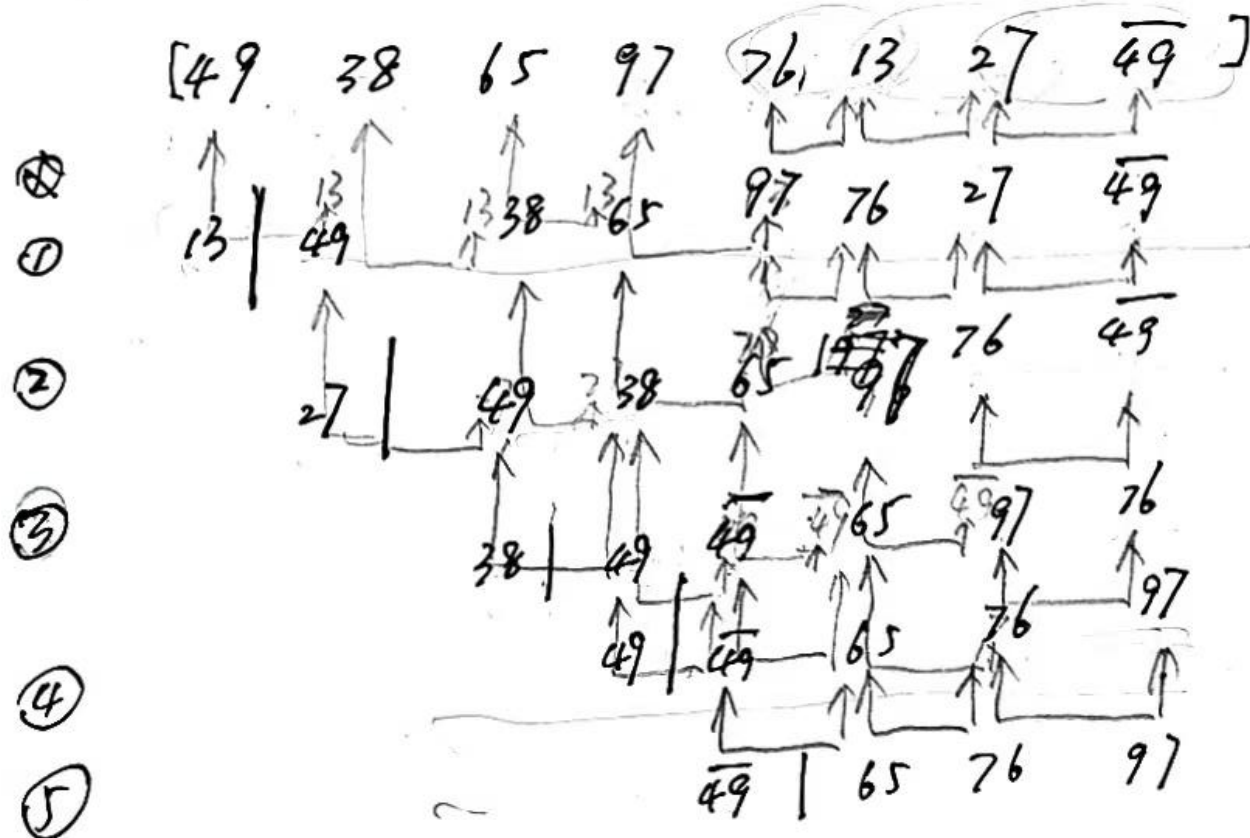 [49 38 65 97 76, 13 27 4̅9̅ ]
13 13 13
① 13 | 49 38 65 97 76 27 4̅9̅
② 27 | 49 38 65 97 76 4̅9̅
③ 38 | 49 4̅9̅ 4̅9̅ 65 4̅9̅ 97 76
49 | 4̅9̅ 65 76 97
④
⑤ 4̅9̅ | 65 76 97